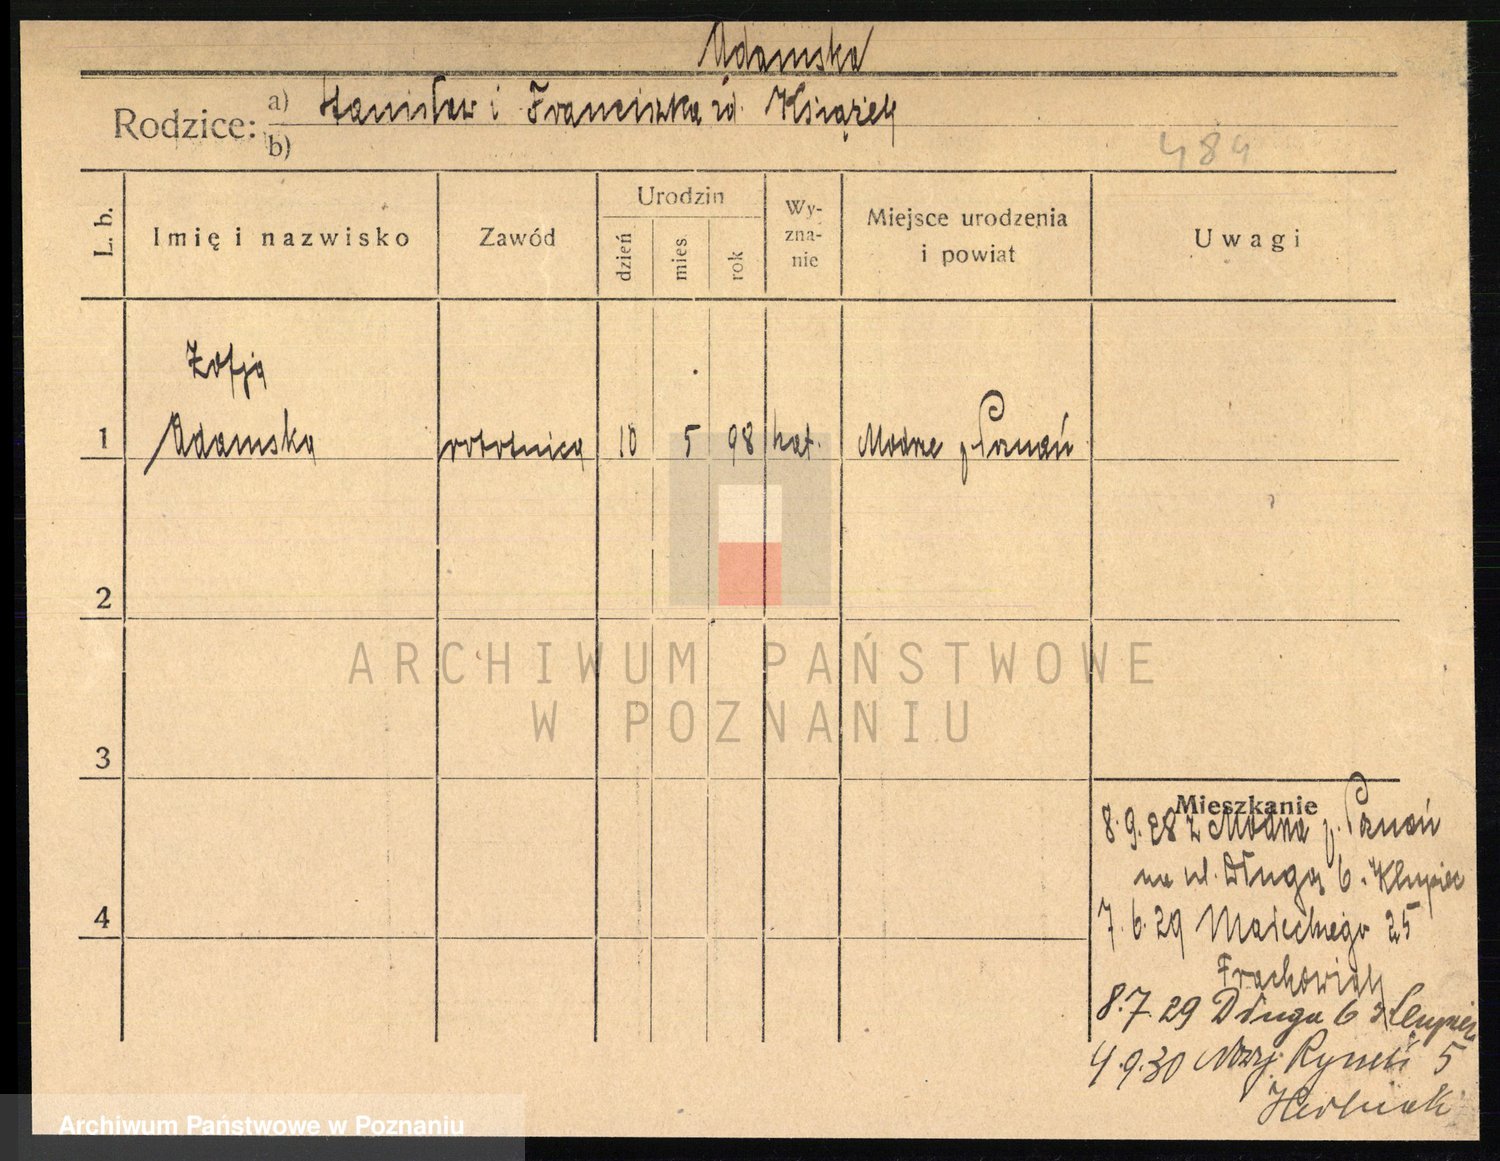 Adamska
Rodzice: a) Stanisław i Franciszka zd. Książek
b)
484
L. b. Imię i nazwisko Zawód Urodzin dzień mies rok Wy-zna-nie Miejsce urodzenia i powiat Uwagi
Zofja
1 Adamska robotnica 10 5 98 kat. Modrze p. Poznań
2
3
4
Mieszkanie
8.9.28 z Modrza p. Poznań
na ul. Długą 6.
7.6.29 Małeckiego 25
8.7.29 Długa 6
4.9.30 Nowy Rynek 5
ARCHIWUM PAŃSTWOWE
W POZNANIU
Archiwum Państwowe w Poznaniu